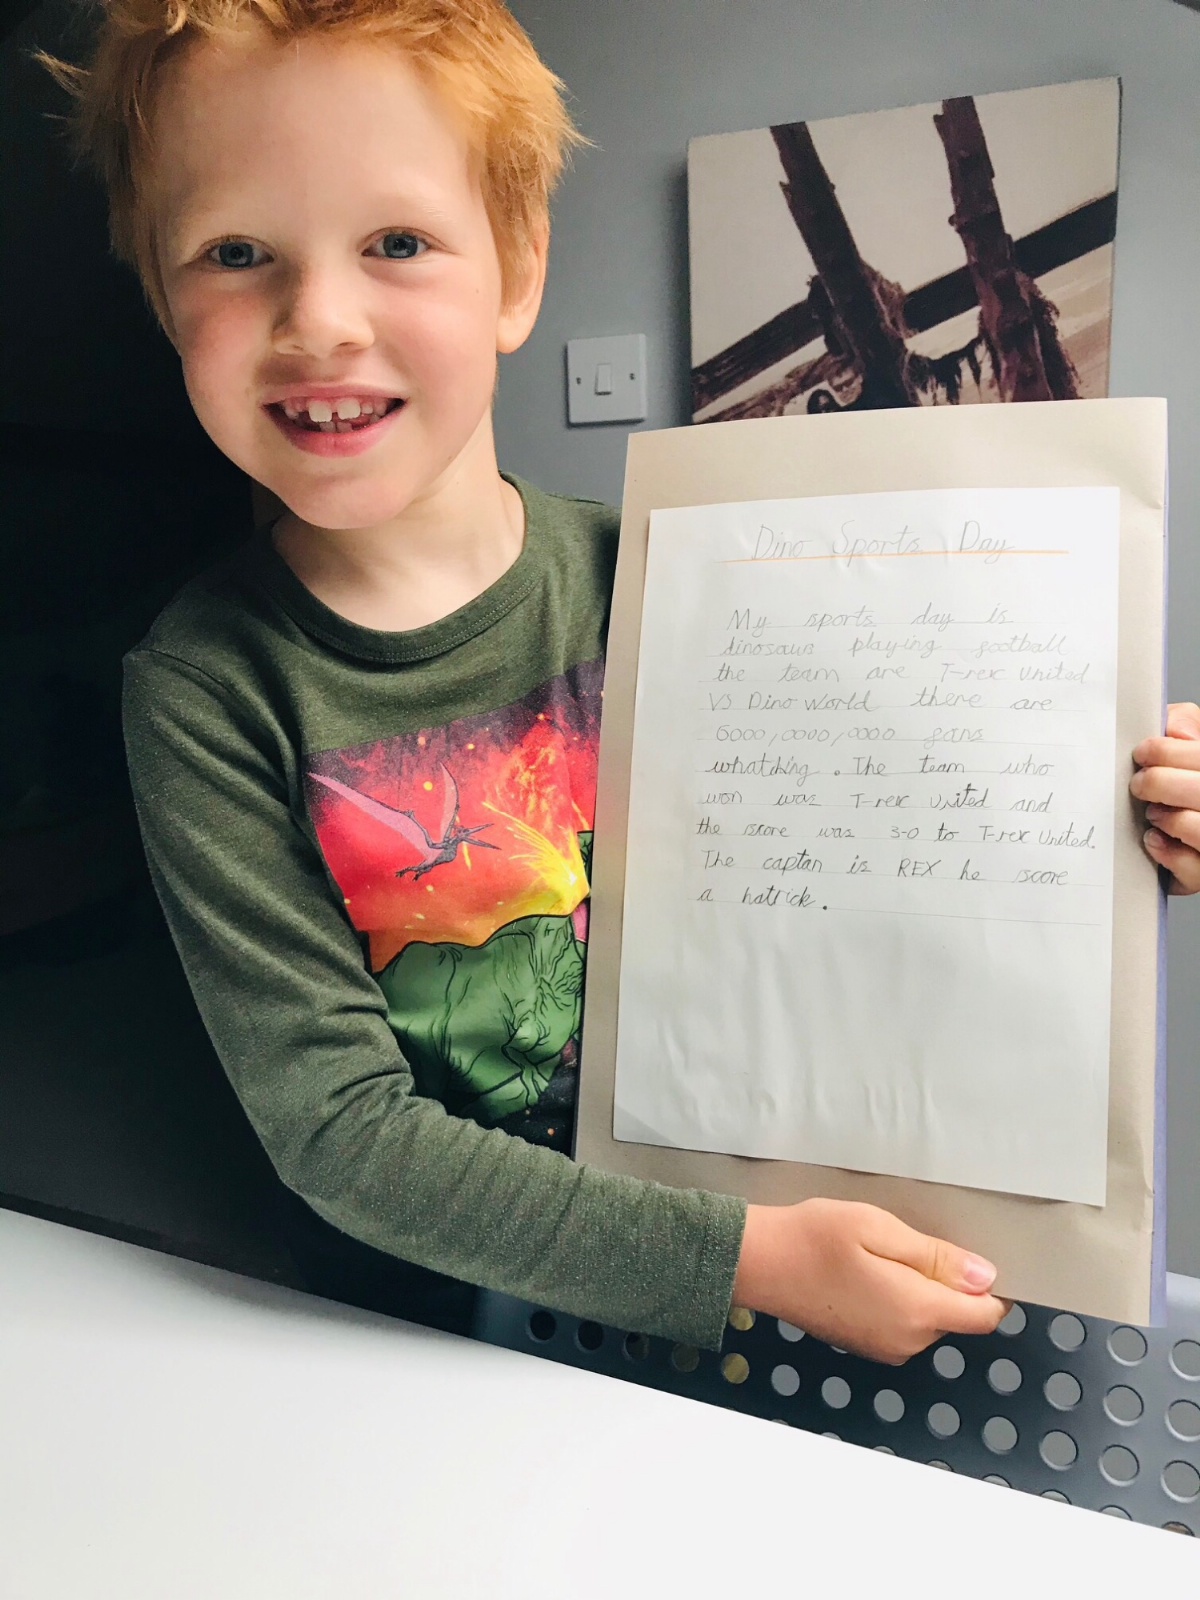 Dino Sports Day
My sports day is
dinosaurs playing football
the team are T-rex United
VS Dino World there are
6000,0000,0000 fans
whatching. The team who
won was T-rex United and
the score was 3-0 to T-rex United.
The captan is REX he score
a hatrick.